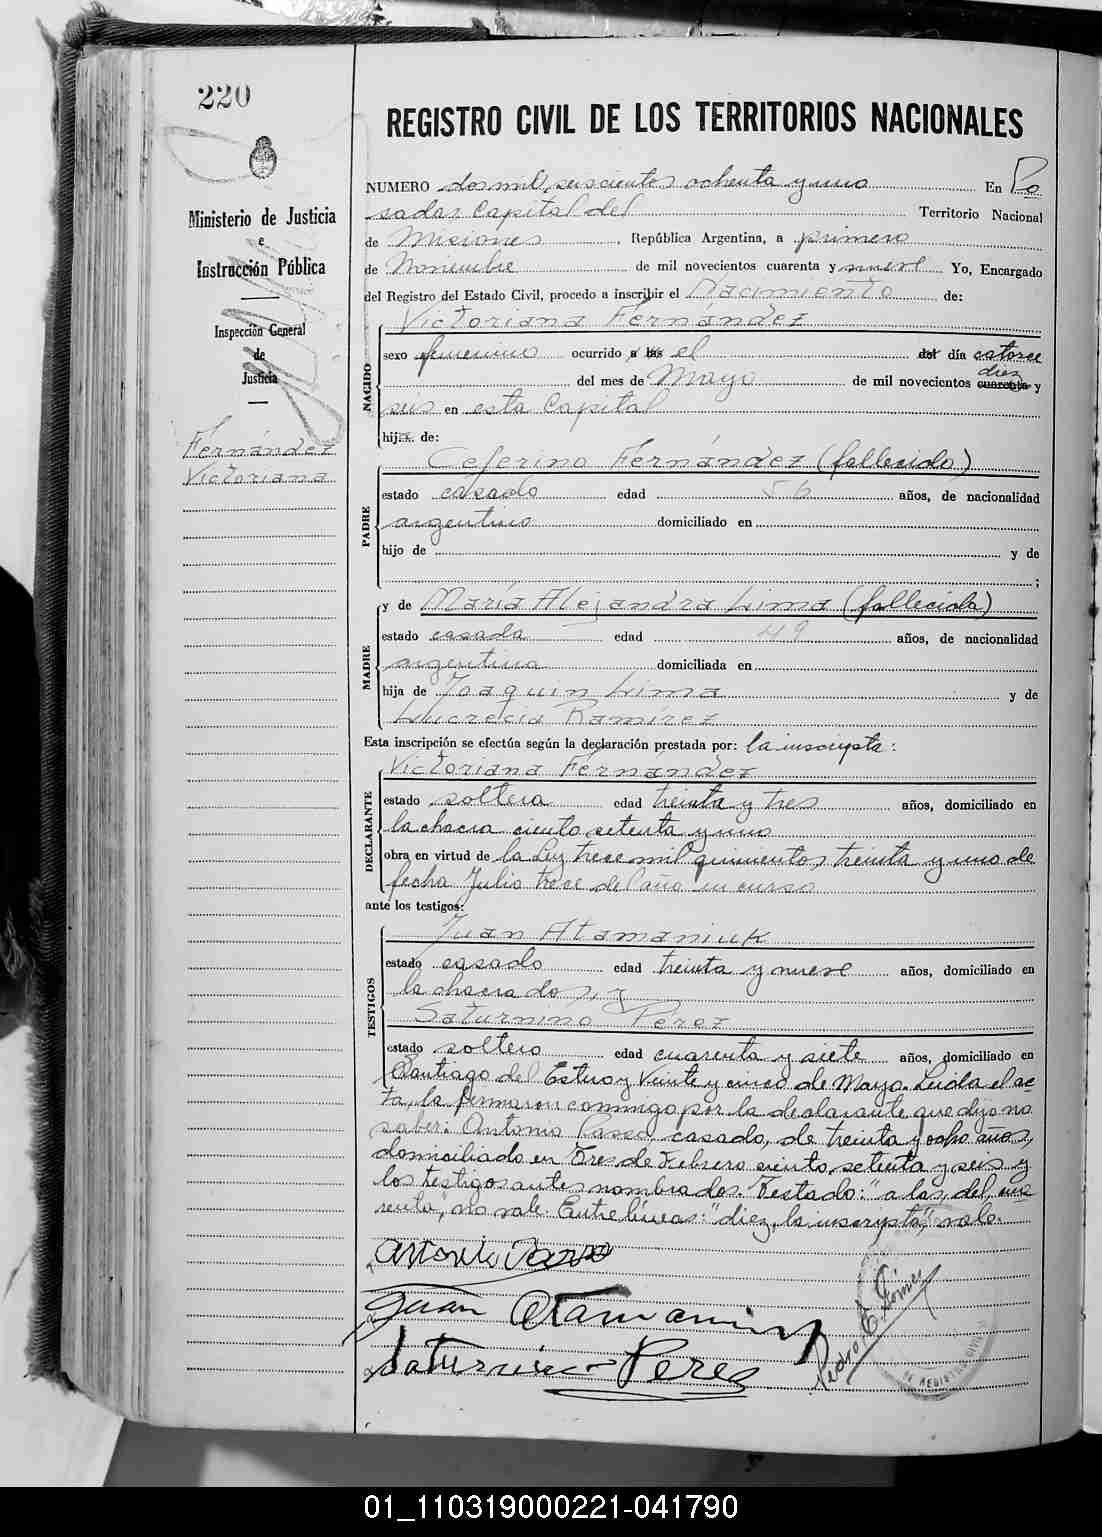 220
REGISTRO CIVIL DE LOS TERRITORIOS NACIONALES
Ministerio de Justicia
e
Instrucción Pública
Inspección General
de
Justicia
Fernández
Victoriana
NUMERO dos mil seiscientos ochenta y uno En Po
sadas Capital del Territorio Nacional
de Misiones, República Argentina, a primero
de Noviembre de mil novecientos cuarenta y nueve Yo, Encargado
del Registro del Estado Civil, procedo a inscribir el Nacimiento de:
NACIDO
Victoriana Fernández
sexo femenino ocurrido a las el del día catorce
diez
del mes de Mayo de mil novecientos cuarenta y
seis en esta Capital
hija de:
PADRE
Ceferino Fernández (fallecido)
estado casado edad 56 años, de nacionalidad
argentino domiciliado en
hijo de y de
;
MADRE
y de María Alejandra Lima (fallecida)
estado casada edad 49 años, de nacionalidad
argentina domiciliada en
hija de Joaquin Lima y de
Lucrecia Ramírez
Esta inscripción se efectúa según la declaración prestada por: la inscripta:
DECLARANTE
Victoriana Fernández
estado soltera edad treinta y tres años, domiciliado en
la chacra ciento setenta y uno
obra en virtud de la Ley trece mil quinientos treinta y uno de
fecha Julio trece del año en curso
ante los testigos:
TESTIGOS
Juan Atamaniuk
estado casado edad treinta y nueve años, domiciliado en
la chacra dos, y
Saturnino Perez
estado soltero edad cuarenta y siete años, domiciliado en
Santiago del Estero y Veinte y cinco de Mayo. Leida el ac
ta, la firmaron conmigo por la declarante que dijo no
saber: Antonio casado, de treinta y ocho años,
domiciliado en Tres de Febrero ciento setenta y seis y
los testigos antes nombrados. Testado: "a las, del, cua
renta", no vale. Entre líneas: "diez, la inscripta", vale.
Antonio
Juan Atamaniuk
Saturnino Perez
Pedro E. Gómez
DE REGISTRO CIVIL
01_110319000221-041790